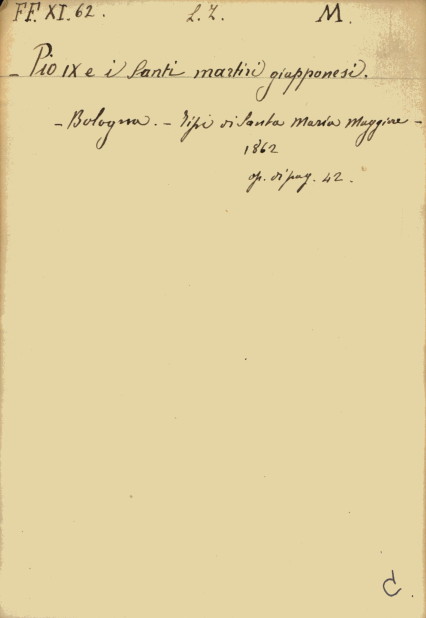 FF. XI. 62. L. Z. M.
- Pio IX e i Santi martiri giapponesi.
- Bologna. - Tipi di Santa Maria Maggiore -
1862
op. di pag. 42.
C